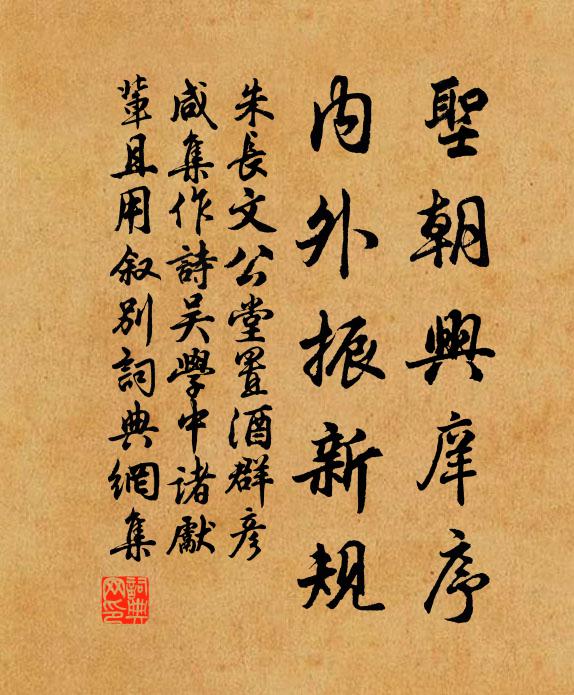 聖朝興庠序
内外振新規
朱長文公堂置酒群彦
咸集作詩吴學中諸獻
輩且用叙别詞典網集
詞典網印